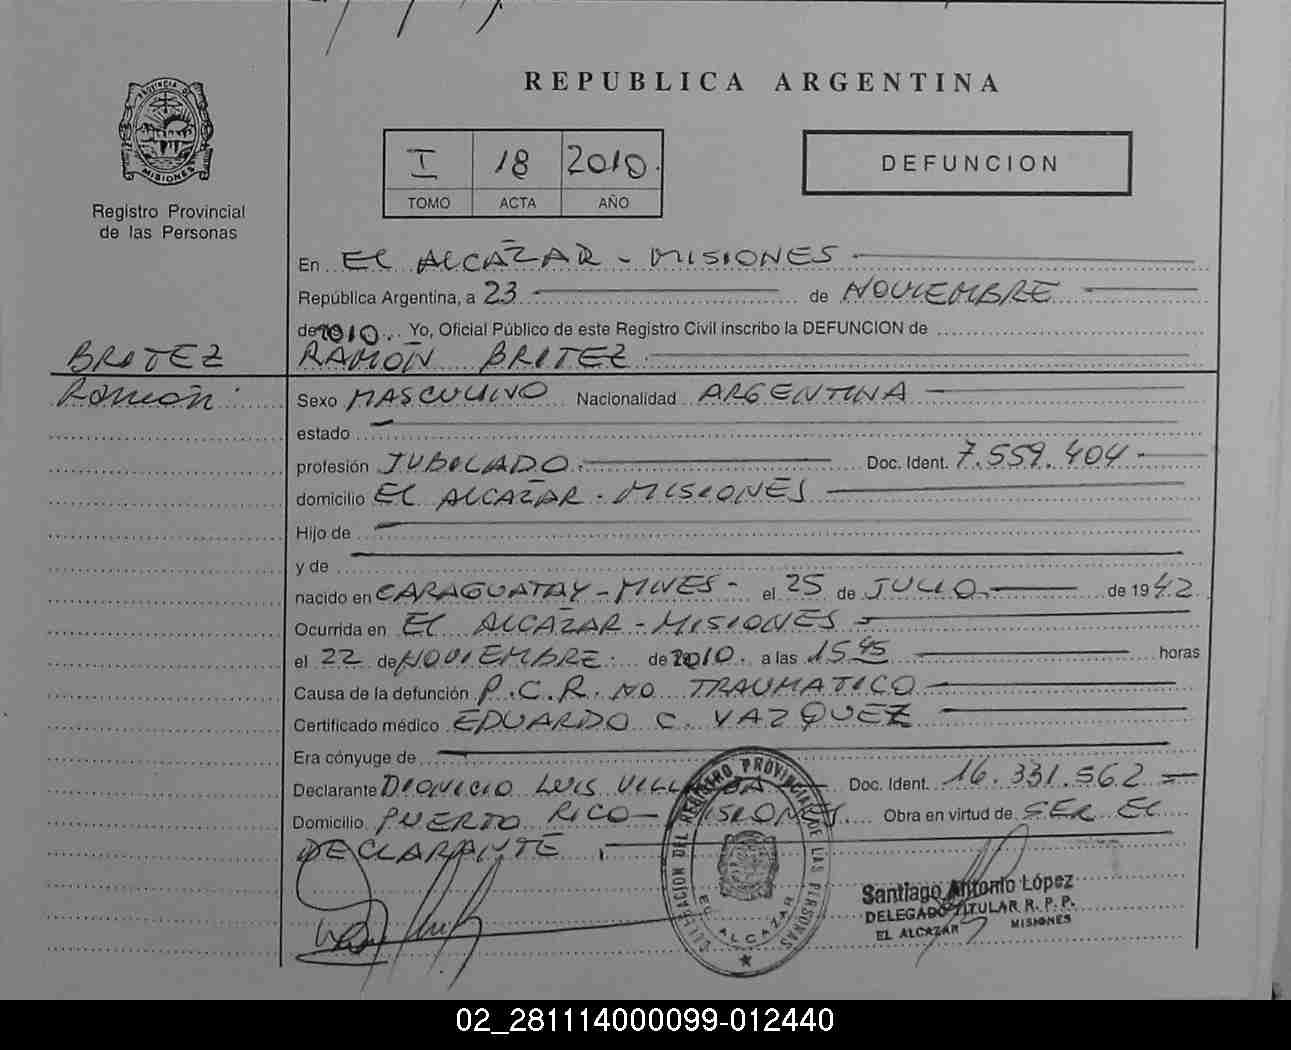 REPUBLICA ARGENTINA
PROVINCIA D
MISIONES
Registro Provincial
de las Personas
I 18 2010.
TOMO ACTA AÑO
DEFUNCION
En EL ALCAZAR - MISIONES
República Argentina, a 23 de NOVIEMBRE
de 2010 Yo, Oficial Público de este Registro Civil inscribo la DEFUNCION de
BRITEZ RAMÓN BRITEZ.
Ramón.
Sexo MASCULINO Nacionalidad ARGENTINA
estado
profesión JUBILADO. Doc. Ident. 7.559.404
domicilio EL ALCAZAR - MISIONES
Hijo de
y de
nacido en CARAGUATAY - MNES - el 25 de JULIO. de 1942
Ocurrida en EL ALCAZAR - MISIONES
el 22 de NOVIEMBRE. de 2010. a las 15 45 horas
Causa de la defunción P.C.R. NO TRAUMATICO
Certificado médico EDUARDO C. VAZQUEZ
Era cónyuge de
Declarante DIONICIO LUIS Doc. Ident. 16.331.562
Domicilio PUERTO RICO - MISIONES Obra en virtud de SER EL
DECLARANTE.
DELEGACION DEL REGISTRO PROVINCIAL DE LAS PERSONAS
EL ALCAZAR
Santiago Antonio López
DELEGADO TITULAR R. P. P.
EL ALCAZAR MISIONES
02_281114000099-012440